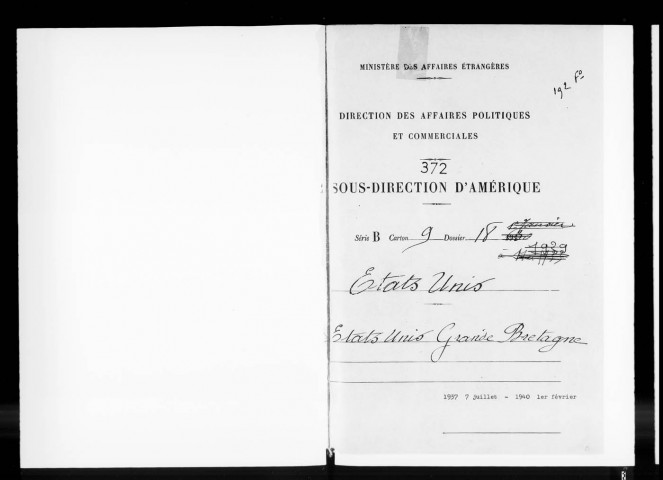 MINISTÈRE DES AFFAIRES ÉTRANGÈRES
192 Fo
DIRECTION DES AFFAIRES POLITIQUES
ET COMMERCIALES
372
SOUS-DIRECTION D'AMÉRIQUE
Série B Carton 9 Dossier 18
1939
Etats Unis
Etats Unis Grande Bretagne
1937 7 juillet - 1940 1er février